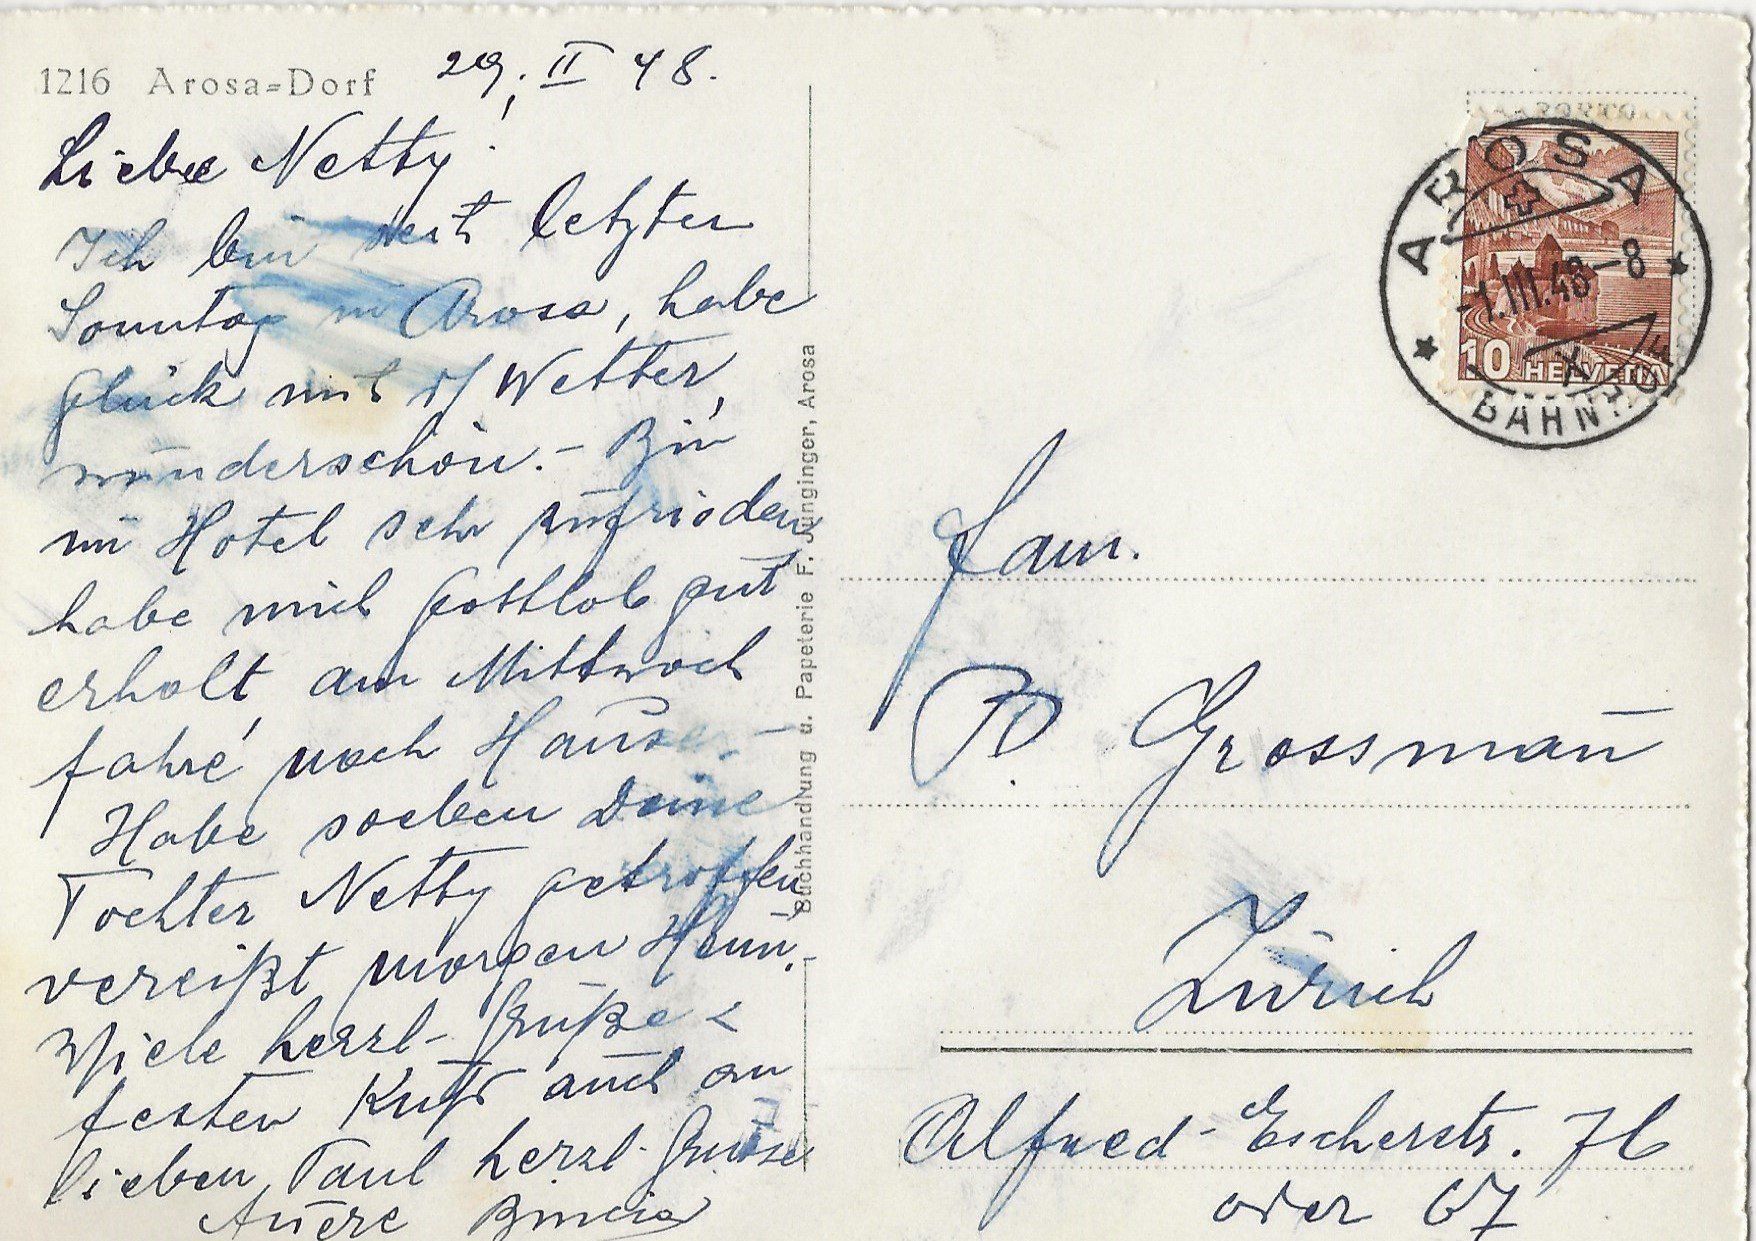 1216 Arosa=Dorf 29. II 48.
Liebe Netty!
Ich bin seit letzten
Sonntag in Arosa, habe
Glück mit d/ Wetter,
wunderschön. – Bin
im Hotel sehr zufrieden
habe mich Gottlob gut
erholt, am Mittwoch
fahre nach Hause. –
Habe soeben Deine
Tochter Netty getroffen,
vereißt morgen Heim. –
Viele herzl. Grüße &
festen Kuß auch an
lieben Paul herzl. Grüsse
Buchhandlung u. Papeterie F. Junginger, Arosa
PORTO
AROSA
-1.III.48-8
BAHNHOF
10 HELVETIA
Fam.
P. Grossmann
Zürich
Alfred-Escherstr. 76
oder 67